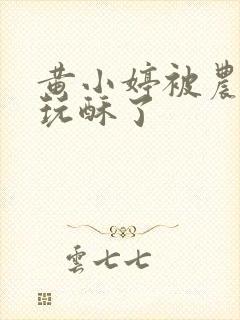 黄小婷被農
玩酥了
雲七七